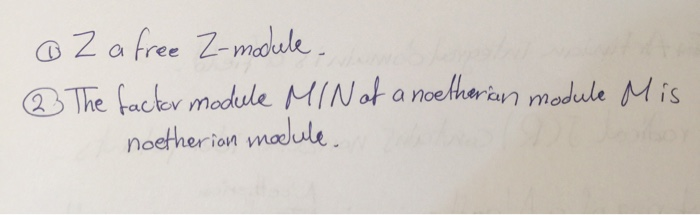 ① Z a free Z-module.
② The factor module M/N of a noetherian module M is
noetherian module.